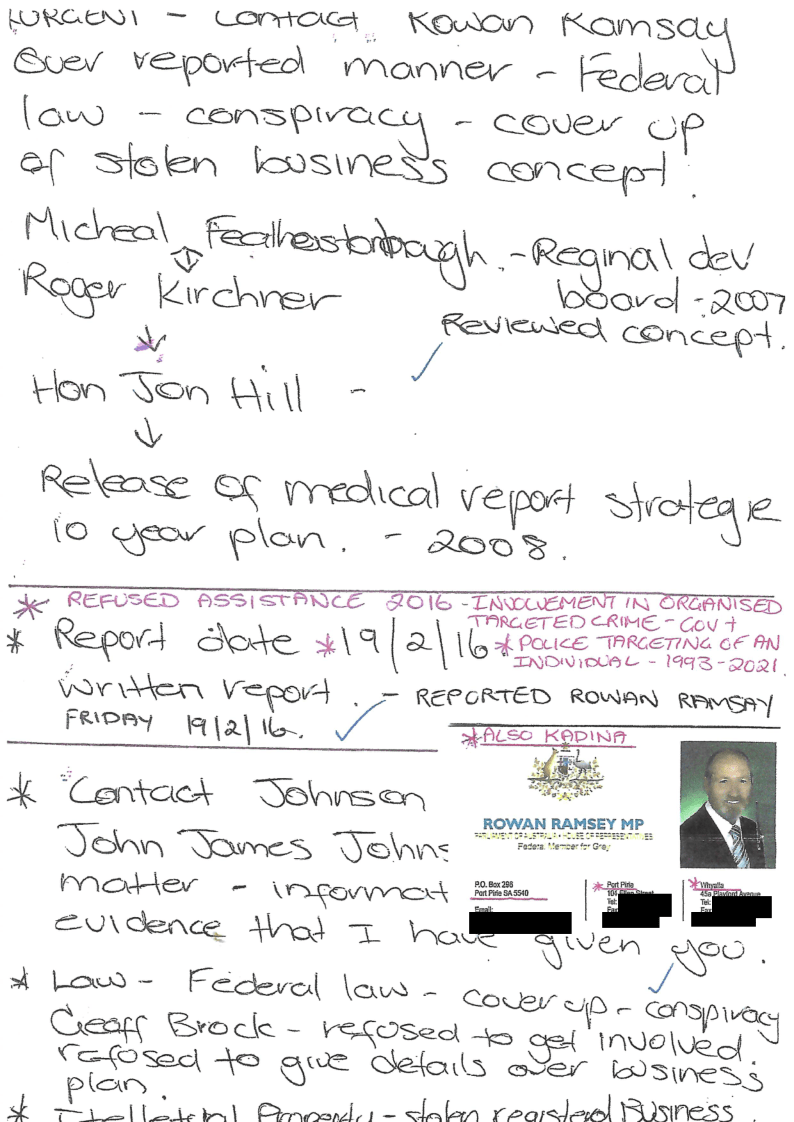 URGENT - Contact Rowan Ramsay
Over reported manner - Federal
law - conspiracy - cover up
of stolen business concept.
Micheal Featherstonhaugh. - Reginal dev
Roger Kirchner board - 2007
Reviewed concept.
Hon Jon Hill -
Release of medical report strategie
10 year plan. - 2008.
* REFUSED ASSISTANCE 2016 - INVOLVEMENT IN ORGANISED
TARGETED CRIME - GOVT
* Report date * 19/2/16 * POLICE TARGETING OF AN
INDIVIDUAL - 1993-2021.
written report. - REPORTED ROWAN RAMSAY
FRIDAY 19/2/16.
* ALSO KADINA
ROWAN RAMSEY MP
PARLIAMENT OF AUSTRALIA • HOUSE OF REPRESENTATIVES
Federal Member for Grey
P.O. Box 296
Port Pirie SA 5540
Email:
* Port Pirie
104 Ellen Street
Tel:
Fax
* Whyalla
45a Playford Avenue
Tel:
Fax
* Contact Johnson
John James Johns
matter - informat
evidence that I have given you.
* Law - Federal law - cover up - conspiracy
Geoff Brock - refused to get involved
refused to give details over business
plan.
* Property - stolen registered Business.